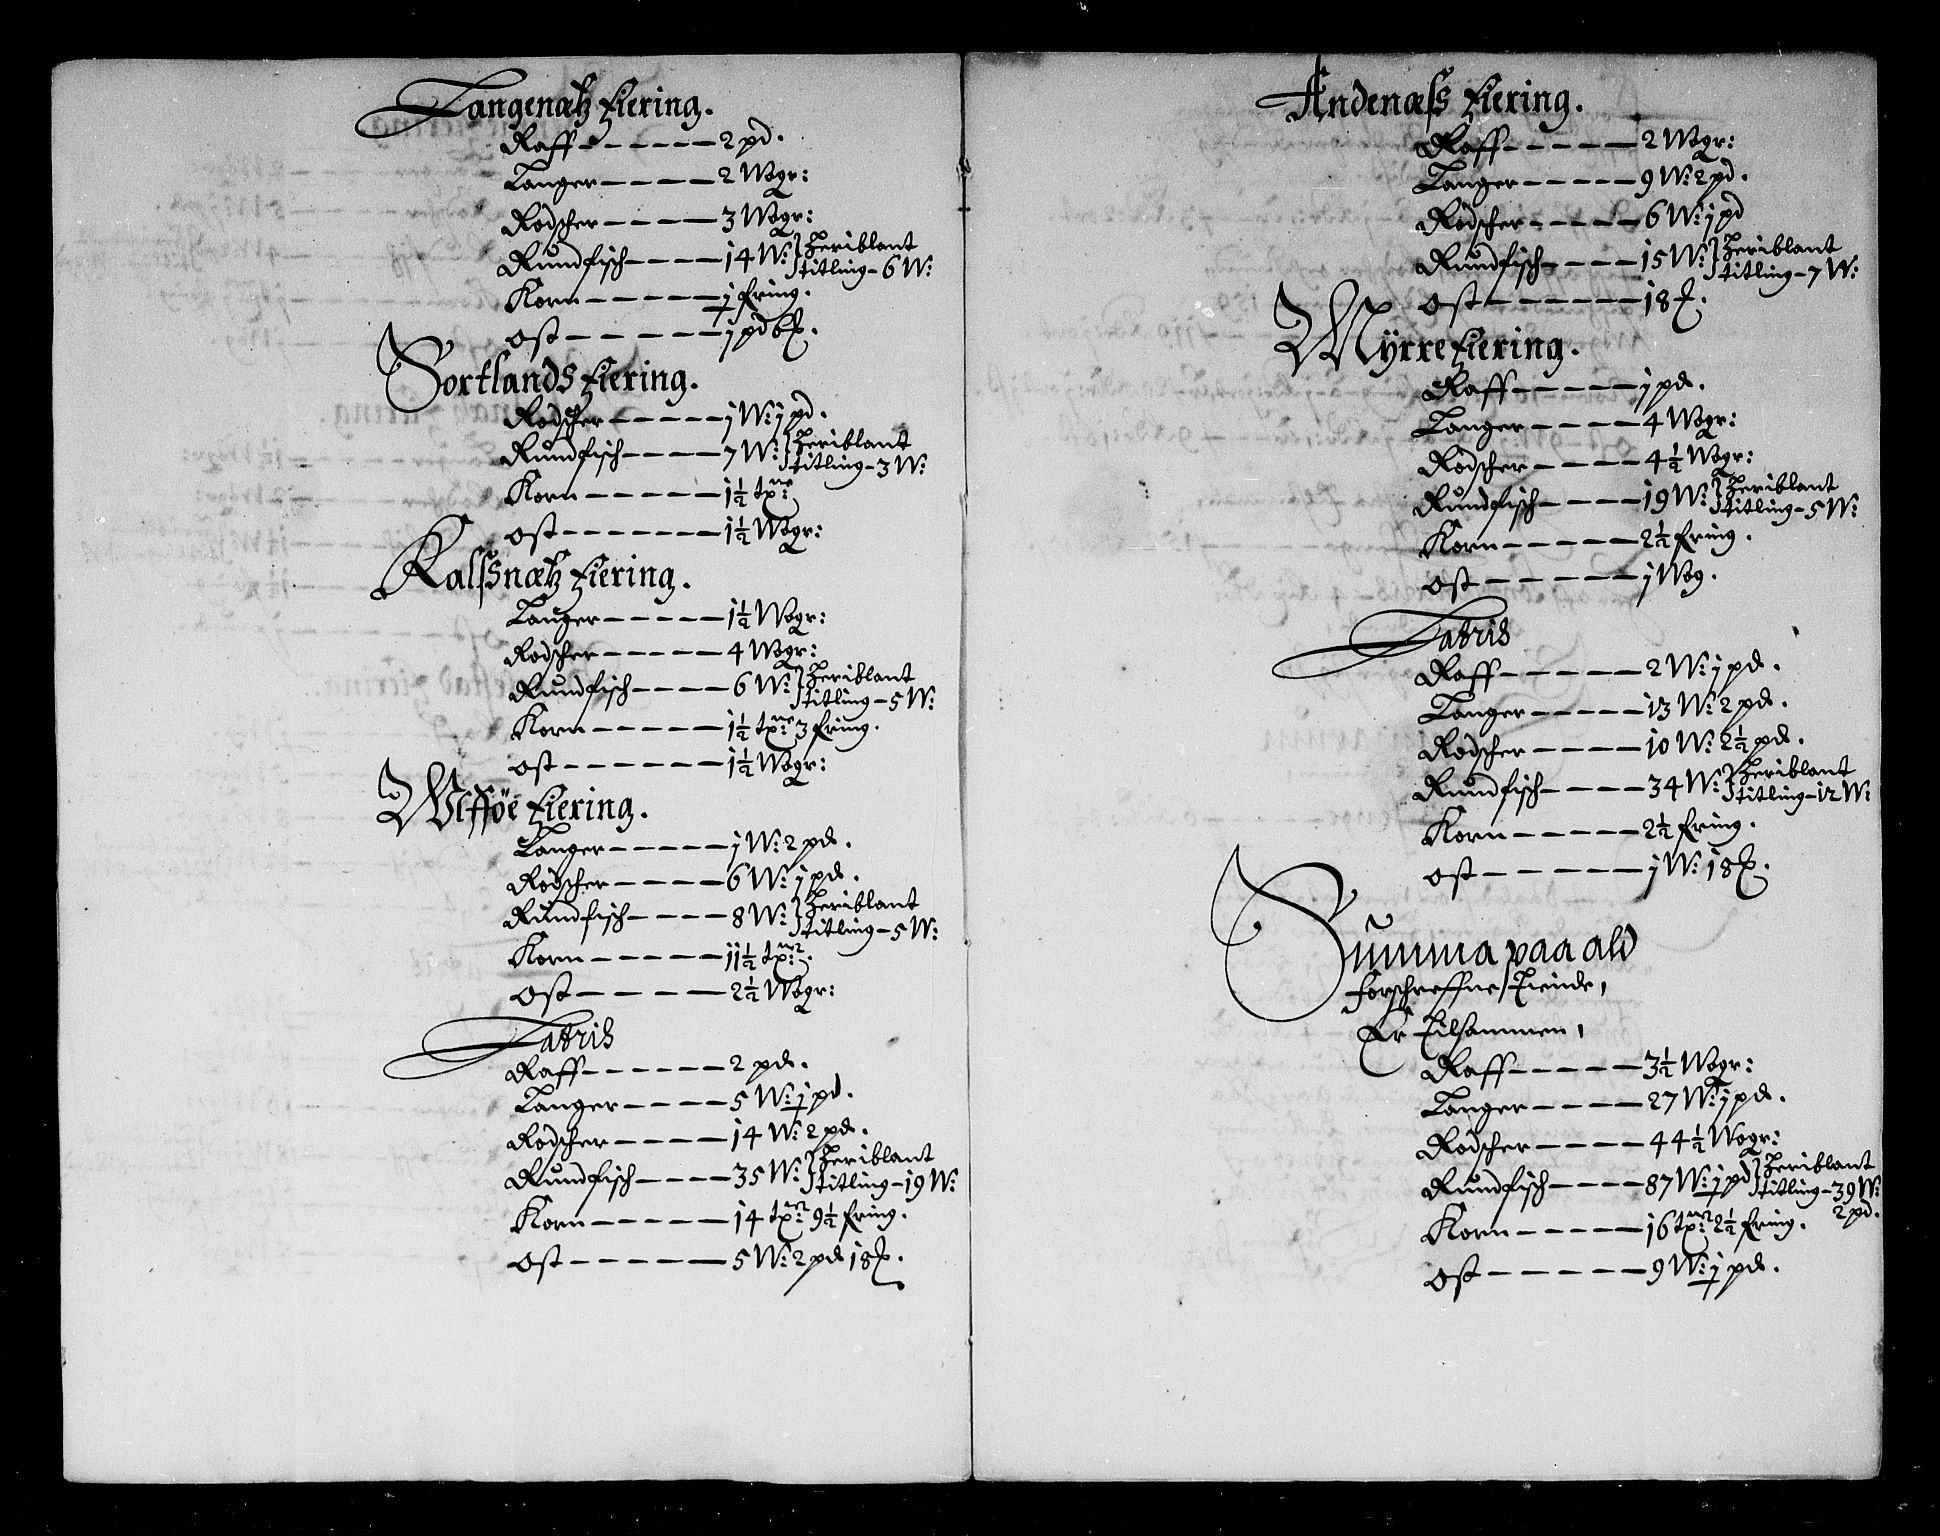 Langenætz Fiering.
Raff — 2 pd.
Langer — 2 Wogr:
Rodscher — 3 Wogr:
Rundfisch — 14 W: heriblant
titling — 6 W:
Korn — j Ering.
Ost — j pd 6 ℔.
Sortlands Fiering.
Rodscher — j W: j pd.
Rundfisch — 7 W: heriblant
titling — 3 W:
Korn — 1½ tne:
Ost — 1½ Wogr:
Kalfsnætz Fiering.
Langer — 1½ Wogr:
Rodscher — 4 Wogr:
Rundfisch — 6 W: heriblant
titling — 5 W:
Korn — 1½ tne: 3 Ering.
Ost — 1½ Wogr:
Ulfföe Fiering.
Langer — j W: 2 pd.
Rodscher — 6 W: j pd.
Rundfisch — 8 W: heriblant
titling — 5 W:
Korn — 11½ tnr:
Ost — 2½ Wogr:
Latris
Raff — 2 pd.
Langer — 5 W: j pd.
Rodscher — 14 W: 2 pd.
Rundfisch — 35 W: heriblant
titling — 19 W:
Korn — 14 tnr: 9½ Ering.
Ost — 5 W: 2 pd 18 ℔.
Andenæss Fiering.
Raff — 2 Wogr:
Langer — 9 W: 2 pd.
Rodscher — 6 W: j pd
Rundfisch — 15 W: heriblant
titling — 7 W:
Ost — 18 ℔.
Myrre Fiering.
Raff — j pd.
Langer — 4 Wogr:
Rodscher — 4½ Wogr:
Rundfisch — 19 W: heriblant
titling — 5 W:
Korn — 2½ Ering.
Ost — j Wog.
Latris
Raff — 2 W: j pd.
Langer — 13 W: 2 pd.
Rodscher — 10 W: 2½ pd.
Rundfisch — 34 W: heriblant
titling — 12 W:
Korn — 2½ Ering.
Ost — j W: 18 ℔.
Summa paa ald
forschreffne Tiende,
Er Tilsammen,
Raff — 3½ Wogr:
Langer — 27 W: j pd.
Rodscher — 44½ Wogr:
Rundfisch — 87 W: j pd heriblant
titling — 39 W:
2 pd.
Korn — 16 tnr: 2½ Ering.
Ost — 9 W: j pd.